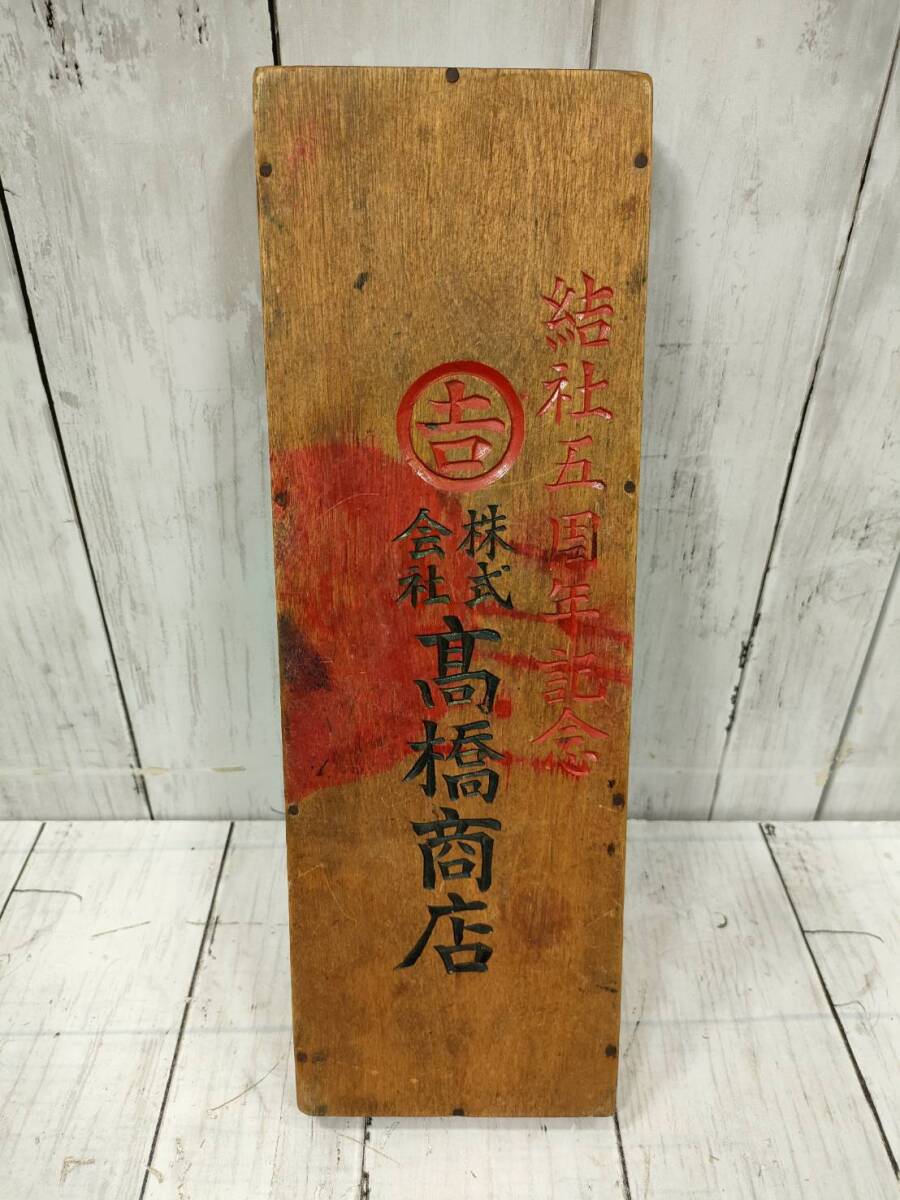 結社五周年記念
吉
株式
会社
髙橋商店